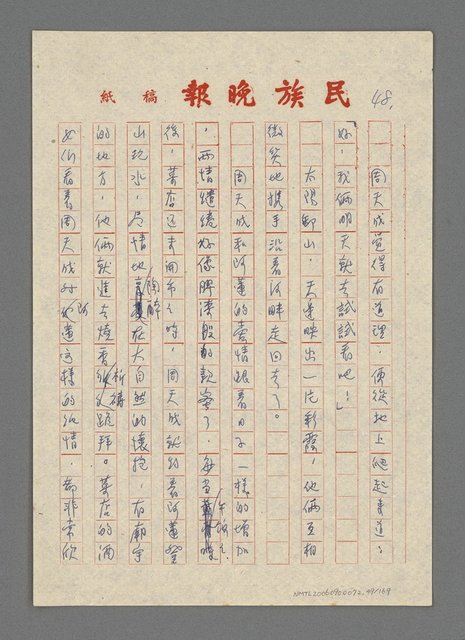 民族晚報 稿紙
48.
周天成覺得有道理,便從地上爬起來道:
「好,我倆明天就去試試看吧!」
太陽卸山,天邊映出一片彩霞,他倆互相
微笑地攜手沿著河畔走回去了。
周天成和阿蓮的感情跟著日子一樣的增加
,兩情繾綣好像脾湊般的親蜜了,每當午飯之
後,菜店還未開市之時,周天成就約著阿蓮登
山玩水,尽情地陶醉在大自然的懷抱,有廟宇
的地方,他倆就進去燒香祈禱跪拜。菜店的酒
女們看着周天成对阿蓮這樣的純情,都非常欣
NMTL20060900072.49/169